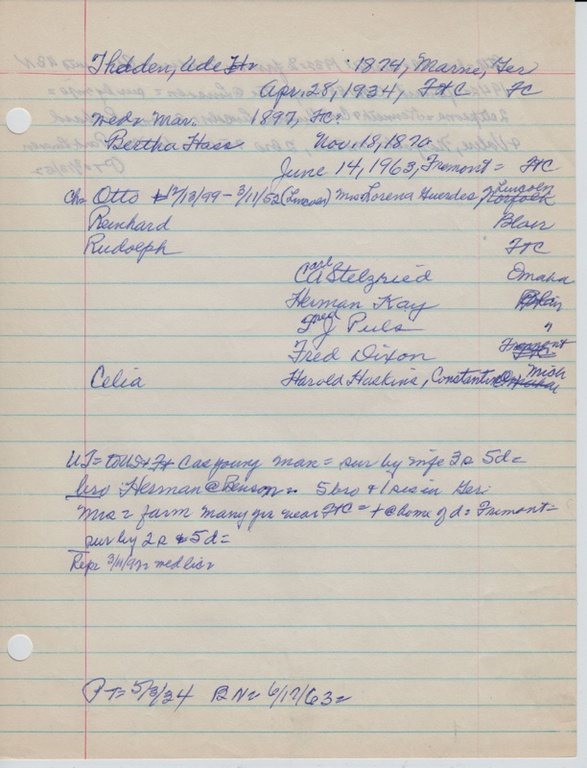 Thedden, Ude 1874, Marne, Ger
Apr. 28, 1934, FtC FC
wed= Mar. 1897, FC=
Bertha Hass Nov. 18, 1870
June 14, 1963, Fremont = FtC
Ch= Otto 12/13/99 - 3/11/52 (Lincoln) Mrs Lorena Guerdes / Lincoln Norfolk
Reinhard Blair
Rudolph FtC
Carl A Stelzried Omaha
Herman Kay Blair
Fred J Puls "
Fred Dixon Fremont FtC
Celia Harold Haskins, Constantine Mich
UT= to US & Ft C as young man = sur by wife 3s 5d=
bro Herman @ Benson = 5 bro & 1 sis in Ger
Mrs = farm many yrs near FtC = + @ home of d = Fremont=
sur by 2s & 5d=
Rept 3/11/97= med lic=
PT= 5/3/34 BN= 6/17/63=